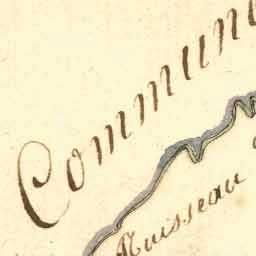 Commune
Ruisseau